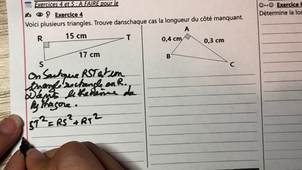 Exercices 4 et 5 : A FAIRE pour le
Exercice 4
Voici plusieurs triangles. Trouve dans chaque cas la longueur du côté manquant.
Exercice 6
Détermine la lon
R 15 cm T
17 cm
S
A
0,4 cm 0,3 cm
B
C
On sait que RST est un
triangle rectangle en R.
D'après le théorème de
Pythagore.
ST² = RS² + RT²